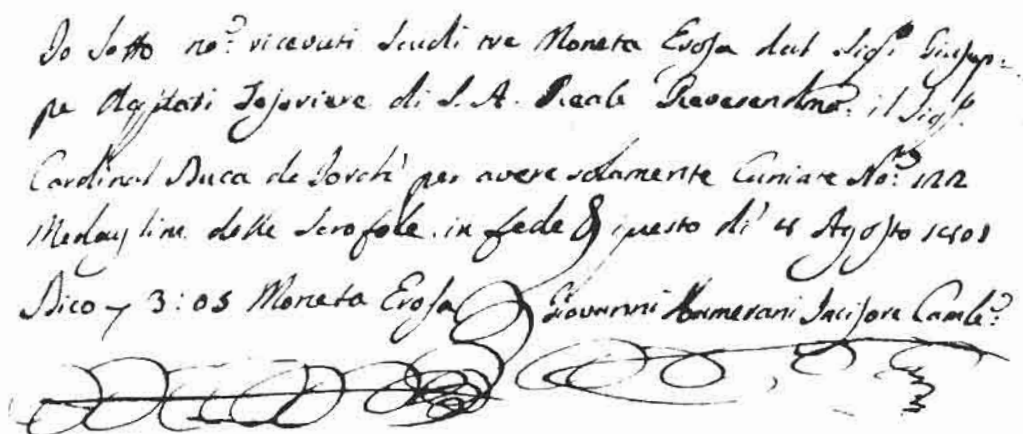 Io sotto no: ricevuti Scudi tre Moneta Erosa dal Sig:r Giusep-
pe Tesoriere di S. A. Reale Reverendma: il Sig:r
Cardinal Duca de Jorch' per avere solamente Cuniate No: 122
Medagline delle Scrofole. in fede questo di' 4 Agosto 1801
Dico 3:05 Moneta Erosa Giovanni Hamerani Incisore Camle: